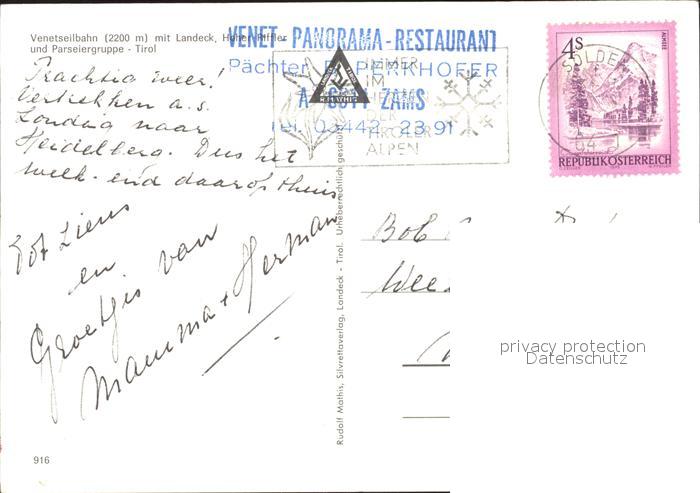 Venetseilbahn (2200 m) mit Landeck, Hoher Riffler
und Parseiergruppe - Tirol
VENET-PANORAMA-RESTAURANT
Pächter PERKHOFER
ZAMS
Tel. 05442 23 91
IMMER
IM
DER
TIROLER
ALPEN
SÖLDEN
4s
ALMSEE
REPUBLIK ÖSTERREICH
Prachtig weer!
Vertrekken a.s.
Zondag naar
Heidelberg. Dus het
week-eind daarop thuis
Tot ziens
en
Groetjes van
Mamma + Herman
Bob
Rudolf Mathis, Silvrettaverlag, Landeck - Tirol. Urheberrechtlich geschützt
privacy protection
Datenschutz
916